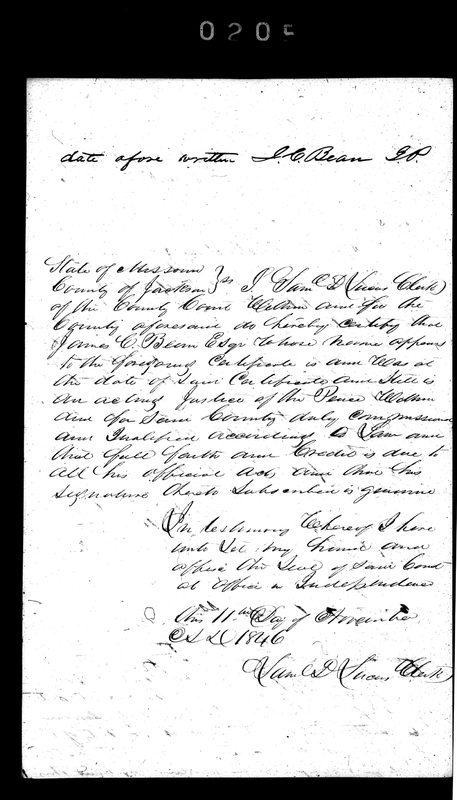 0205
date afore written J. C. Bean J.P.
State of Missouri
County of Jackson } ss I Saml D Lucas Clerk
of the County Court Within and for the
County aforesaid do hereby certify that
James C. Bean Esqr Whose Name appears
to the foregoing Certificate is and Was at
the date of Said Certificate and Still is
an acting Justice of the Peace Within
and for Said County duly commissioned
and Qualified according to Law and
that full faith and Credit is due to
all his official acts and that his
Signature thereto Subscribed is genuine
In testimony Whereof I have
unto Set my hand and
affixed the Seal of Said Court
at Office in Independence
this 11th Day of November
AD 1846
Saml D Lucas Clerk